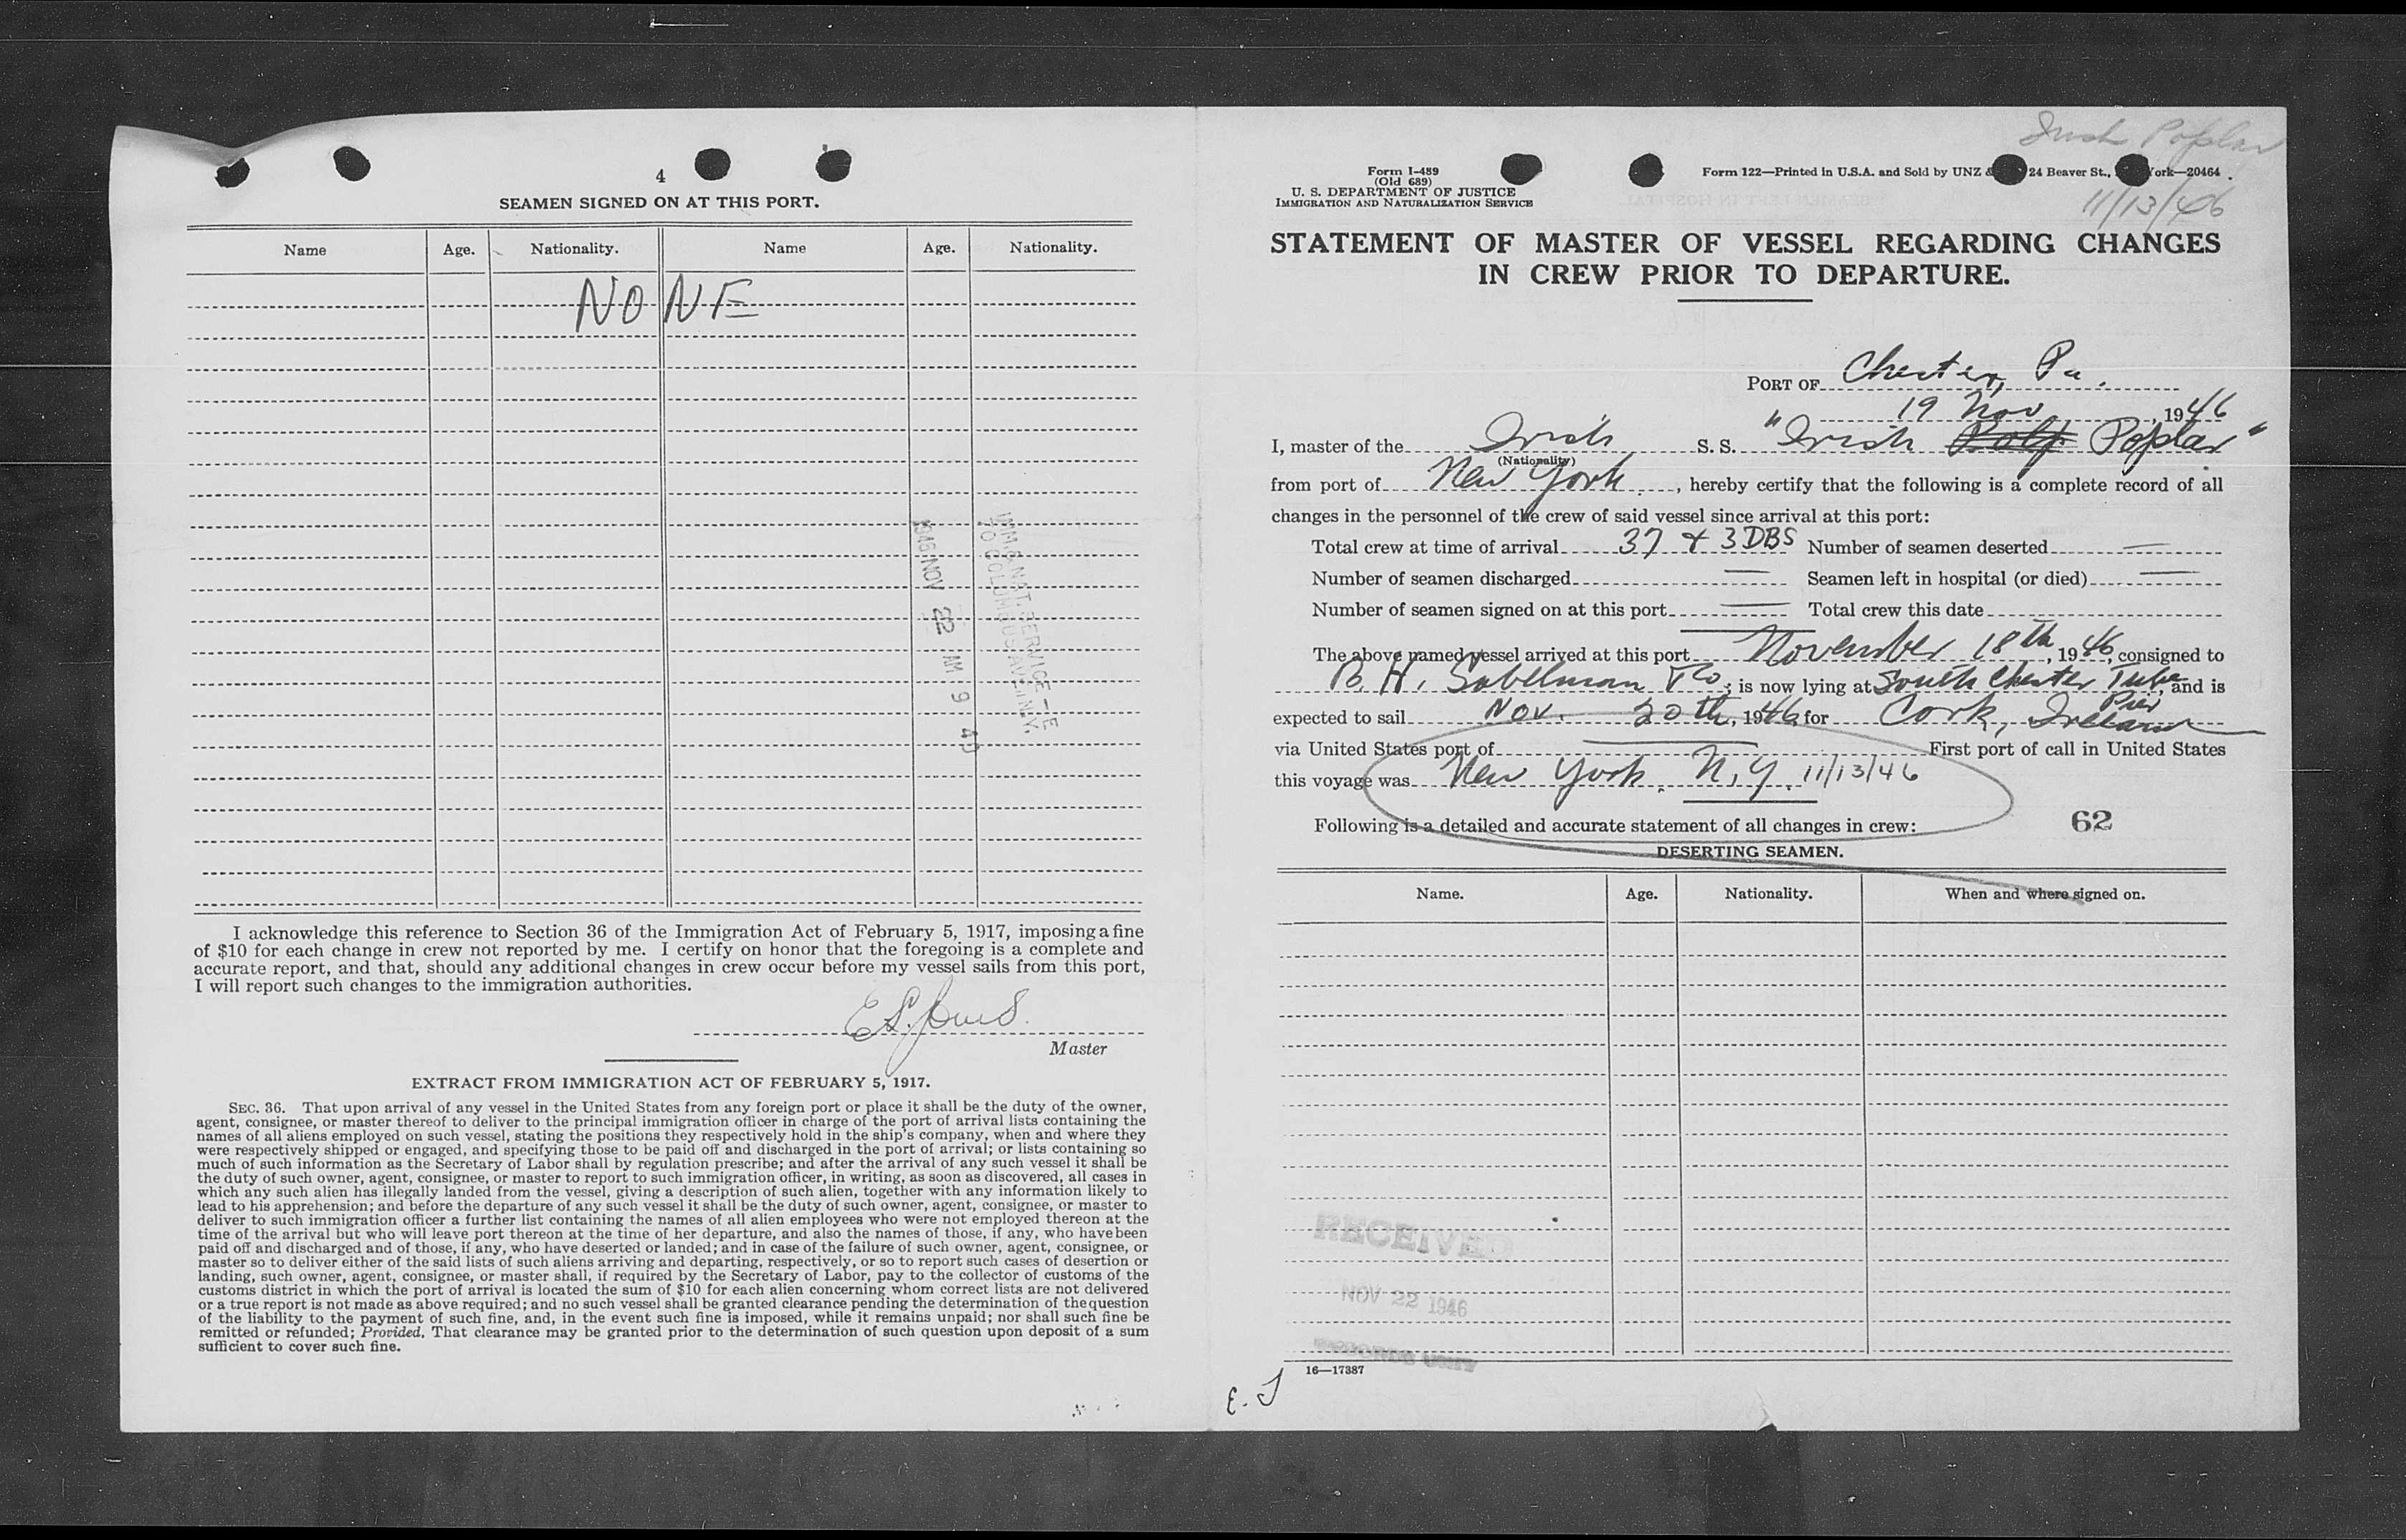 4
SEAMEN SIGNED ON AT THIS PORT.
Name Age. Nationality. Name Age. Nationality.
NONE
IMM. & NAT. SERVICE
70 COLUMBUS AVE. N.Y.
1946 NOV 22 AM 9 40
I acknowledge this reference to Section 36 of the Immigration Act of February 5, 1917, imposing a fine
of $10 for each change in crew not reported by me. I certify on honor that the foregoing is a complete and
accurate report, and that, should any additional changes in crew occur before my vessel sails from this port,
I will report such changes to the immigration authorities.
Master
EXTRACT FROM IMMIGRATION ACT OF FEBRUARY 5, 1917.
SEC. 36. That upon arrival of any vessel in the United States from any foreign port or place it shall be the duty of the owner,
agent, consignee, or master thereof to deliver to the principal immigration officer in charge of the port of arrival lists containing the
names of all aliens employed on such vessel, stating the positions they respectively hold in the ship's company, when and where they
were respectively shipped or engaged, and specifying those to be paid off and discharged in the port of arrival; or lists containing so
much of such information as the Secretary of Labor shall by regulation prescribe; and after the arrival of any such vessel it shall be
the duty of such owner, agent, consignee, or master to report to such immigration officer, in writing, as soon as discovered, all cases in
which any such alien has illegally landed from the vessel, giving a description of such alien, together with any information likely to
lead to his apprehension; and before the departure of any such vessel it shall be the duty of such owner, agent, consignee, or master to
deliver to such immigration officer a further list containing the names of all alien employees who were not employed thereon at the
time of the arrival but who will leave port thereon at the time of her departure, and also the names of those, if any, who have been
paid off and discharged and of those, if any, who have deserted or landed; and in case of the failure of such owner, agent, consignee, or
master so to deliver either of the said lists of such aliens arriving and departing, respectively, or so to report such cases of desertion or
landing, such owner, agent, consignee, or master shall, if required by the Secretary of Labor, pay to the collector of customs of the
customs district in which the port of arrival is located the sum of $10 for each alien concerning whom correct lists are not delivered
or a true report is not made as above required; and no such vessel shall be granted clearance pending the determination of the question
of the liability to the payment of such fine, and, in the event such fine is imposed, while it remains unpaid; nor shall such fine be
remitted or refunded; Provided, That clearance may be granted prior to the determination of such question upon deposit of a sum
sufficient to cover such fine.
Irish Poplar
11/13/46
Form I-489
(Old 689)
U. S. DEPARTMENT OF JUSTICE
IMMIGRATION AND NATURALIZATION SERVICE
Form 122—Printed in U.S.A. and Sold by UNZ & 24 Beaver St., York—20464
STATEMENT OF MASTER OF VESSEL REGARDING CHANGES
IN CREW PRIOR TO DEPARTURE.
PORT OF Chester, Pa.
19 Nov, 1946
I, master of the Irish S. S. "Irish Poplar"
(Nationality)
from port of New York, hereby certify that the following is a complete record of all
changes in the personnel of the crew of said vessel since arrival at this port:
Total crew at time of arrival 37 & 3 DBS Number of seamen deserted —
Number of seamen discharged — Seamen left in hospital (or died) —
Number of seamen signed on at this port — Total crew this date
The above named vessel arrived at this port November 18th, 1946, consigned to
B. H. Sobelman & Co; is now lying at South Chester Tube Pier, and is
expected to sail Nov. 20th, 1946, for Cork, Ireland
via United States port of — First port of call in United States
this voyage was New York, N.Y. 11/13/46
Following is a detailed and accurate statement of all changes in crew:
62
DESERTING SEAMEN.
Name. Age. Nationality. When and where signed on.
RECEIVED
NOV 22 1946
RECORDS UNIT
16—17387
E. J